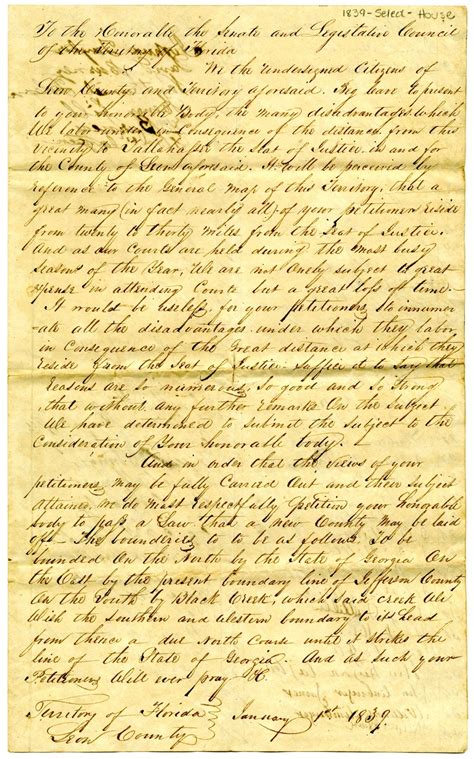 1839-Select-House
To the Honorable the Senate and Legislative Council
of the Territory of Florida
We the Undersigned Citizens of
Leon County and Territory aforesaid. Beg leave to present
to your honorable Body, the many disadvantages which
We labor under in Consequence of the distance from this
Vicinity to Tallahassee the Seat of Justice in and for
the County of Leon aforesaid. It will be perceived by
reference to the General map of this Territory, that a
great many (in fact nearly all) of your petitioners reside
from twenty to thirty miles from the Seat of Justice.
And as our Courts are held during the most busy
Season of the Year, We are not Onely subject to great
expense in attending Courts but a great loss of time.
It would be useless, for your petitioners, to innumer-
ate all the disadvantages under which they labor,
in Consequence of the Great distance at which they
Reside from the Seat of Justice. Suffice it to Say that
Reasons are so numerous, so good and so Strong
that without any further remarks On the Subject
We have determined to Submit the Subject to the
Consideration of Your honorable body.
And in order that the views of your
petitioners may be fully Carried Out and these Subject
Attained, we do most respectfully Petition your Honorable
body to pass a Law, that a new County may be laid
off - The bounderies to be as follows. To be
bounded On the North by the State of Georgia On
the East by the present boundary line of Jefferson County
On the South by Black Creek, which Said creek We
Wish the Southern and Western boundary to its head
from thence a due North Course until it strikes the
line of the State of Georgia. And as Such your
Petitioners Will ever pray &c.
Territory of Florida January 1st 1839.
Leon County